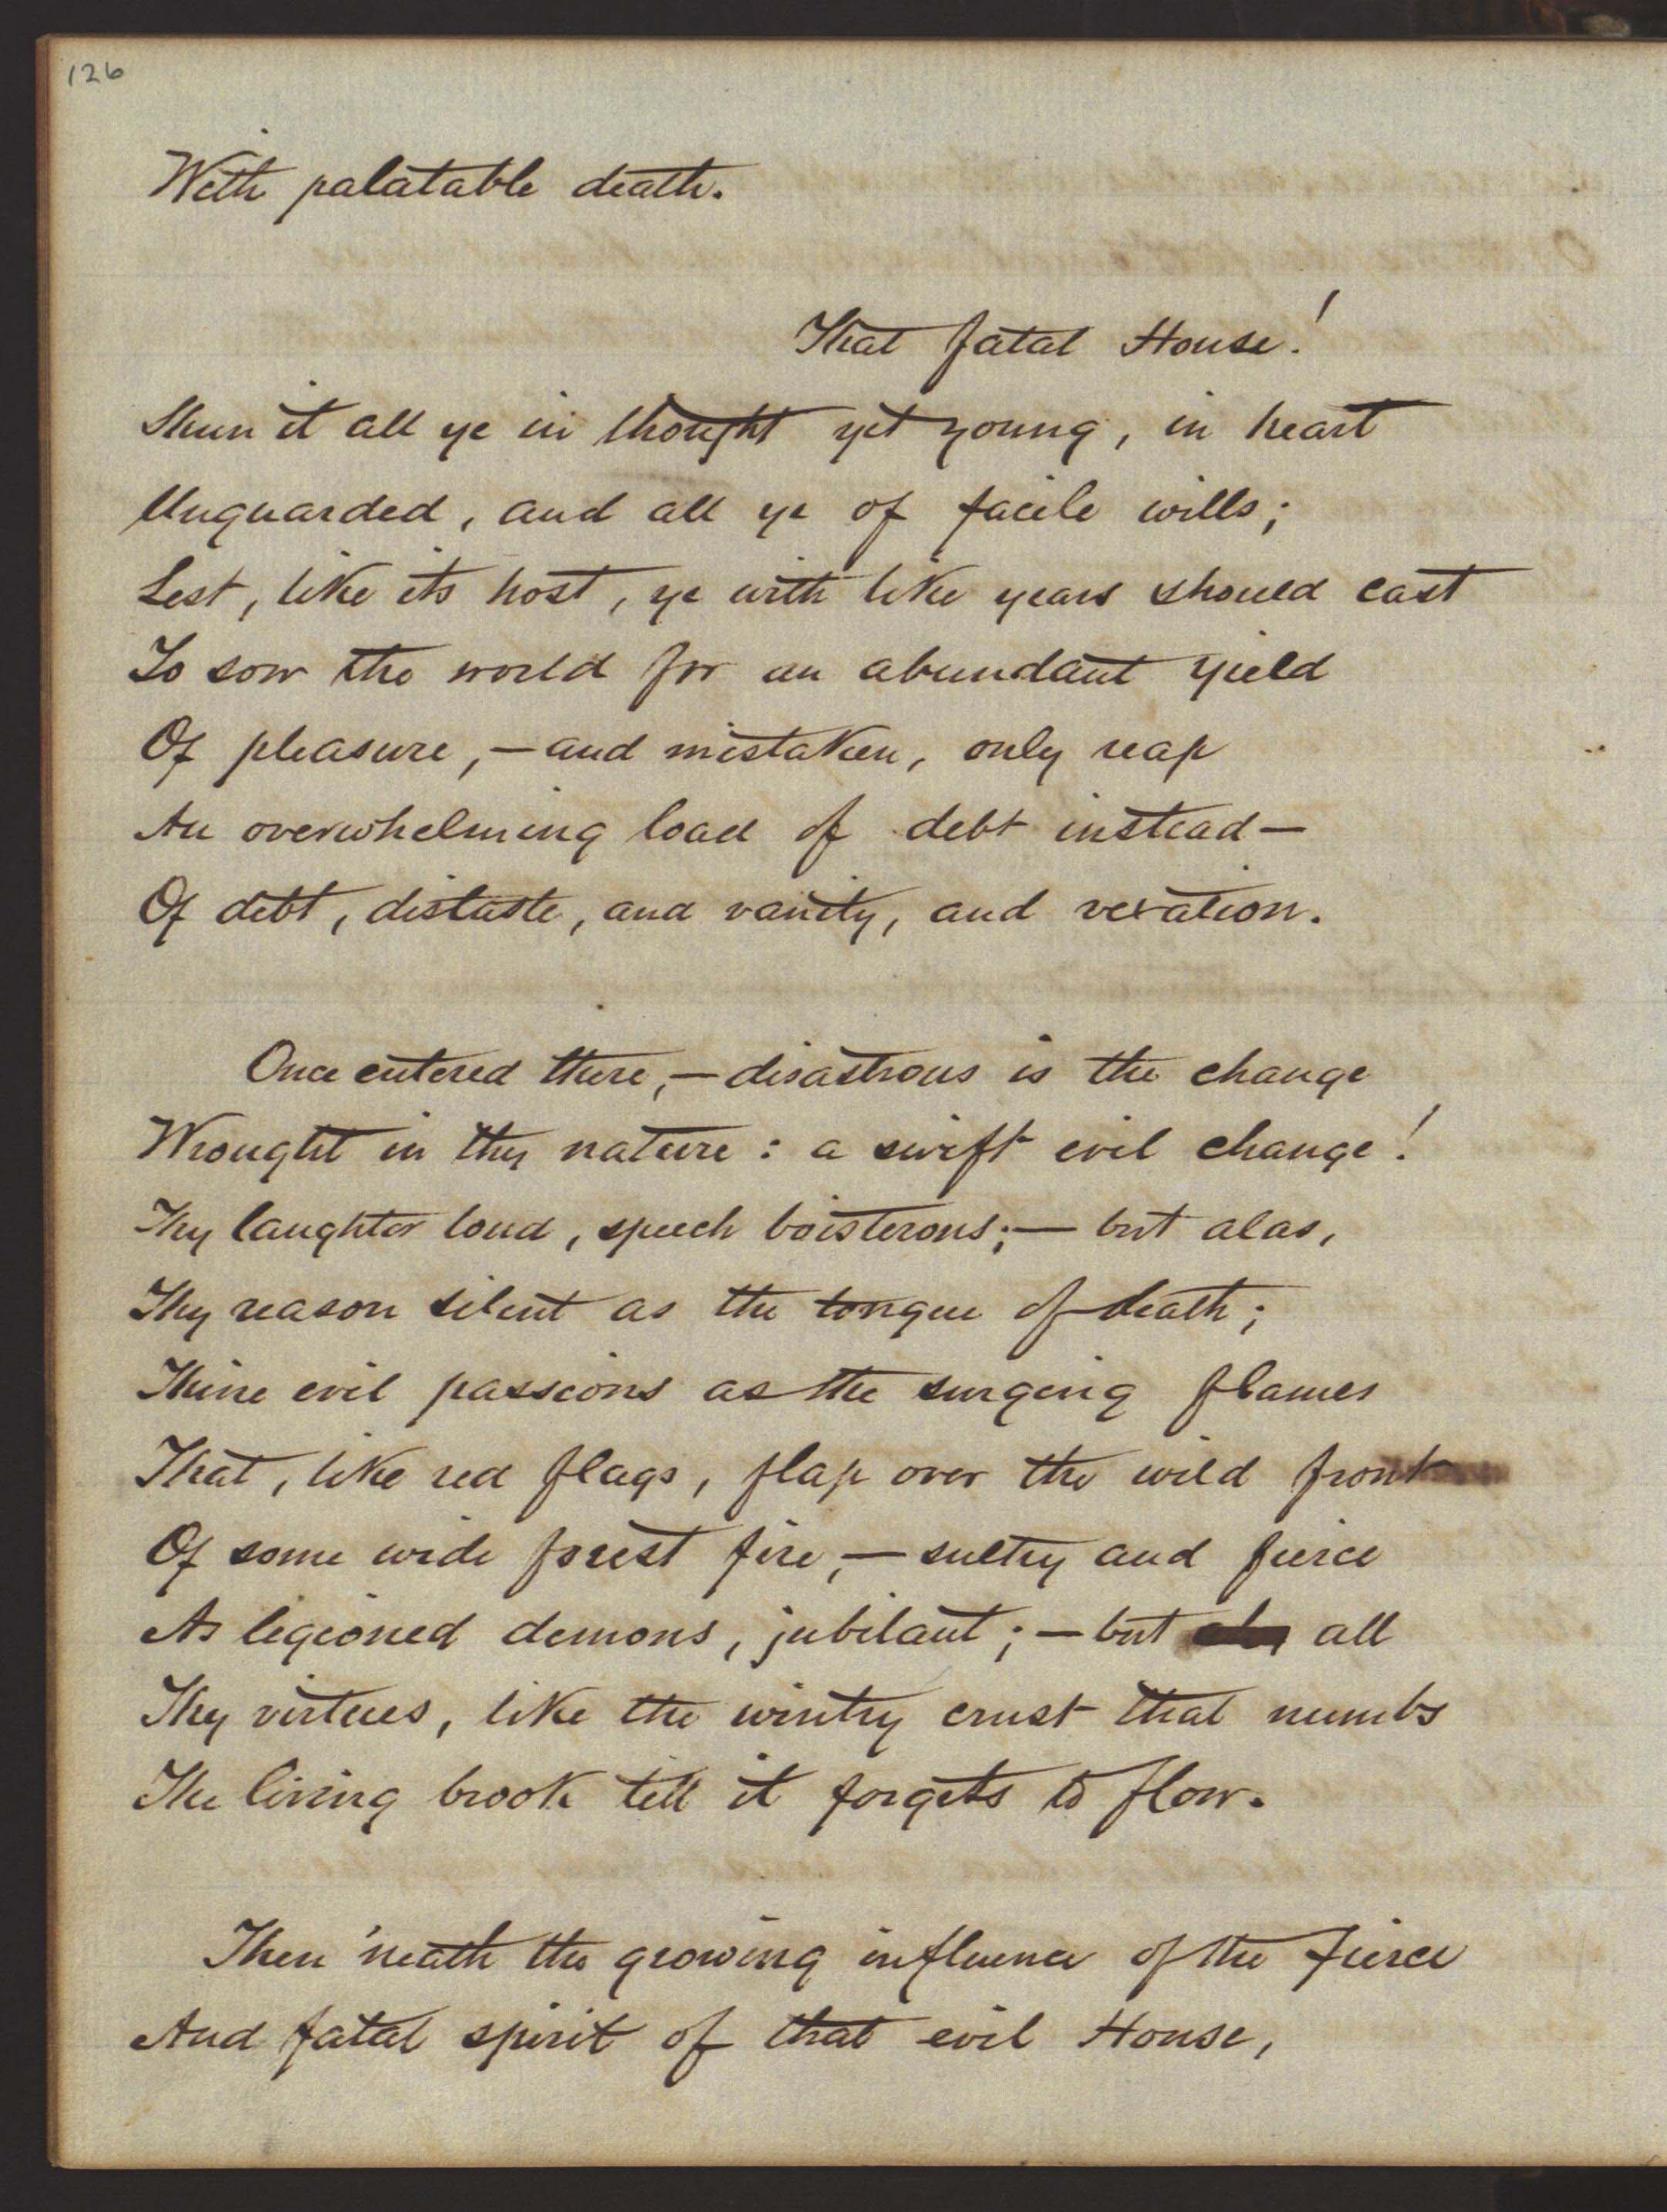 126
With palatable death.
That fatal House!
Shun it all ye in thought yet young, in heart
Unguarded, and all ye of facile wills;
Lest, like its host, ye with like years should cast
To sow the world for an abundant yield
Of pleasure,—and mistaken, only reap
An overwhelming load of debt instead—
Of debt, distaste, and vanity, and vexation.
Once entered there,—disastrous is the change
Wrought in thy nature: a swift evil change!
Thy laughter loud, speech boisterous;—but alas,
Thy reason silent as the tongue of death;
Thine evil passions as the surging flames
That, like red flags, flap over the wild front
Of some wide forest fire,—sultry and fierce
As legioned demons, jubilant;—but all
Thy virtues, like the wintry crust that numbs
The living brook till it forgets to flow.
Then 'neath the growing influence of the fierce
And fatal spirit of that evil House,